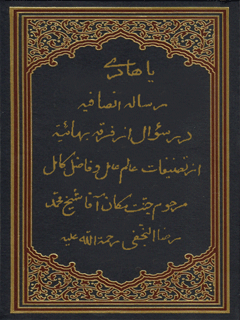 یا هادی
رساله انصافیه
در سؤال از فرقه بهائیه
از تصنیفات عالم عامل و فاضل کامل
مرحوم جنت مکان آقا شیخ محمد
رضا النجفی رحمة الله علیه